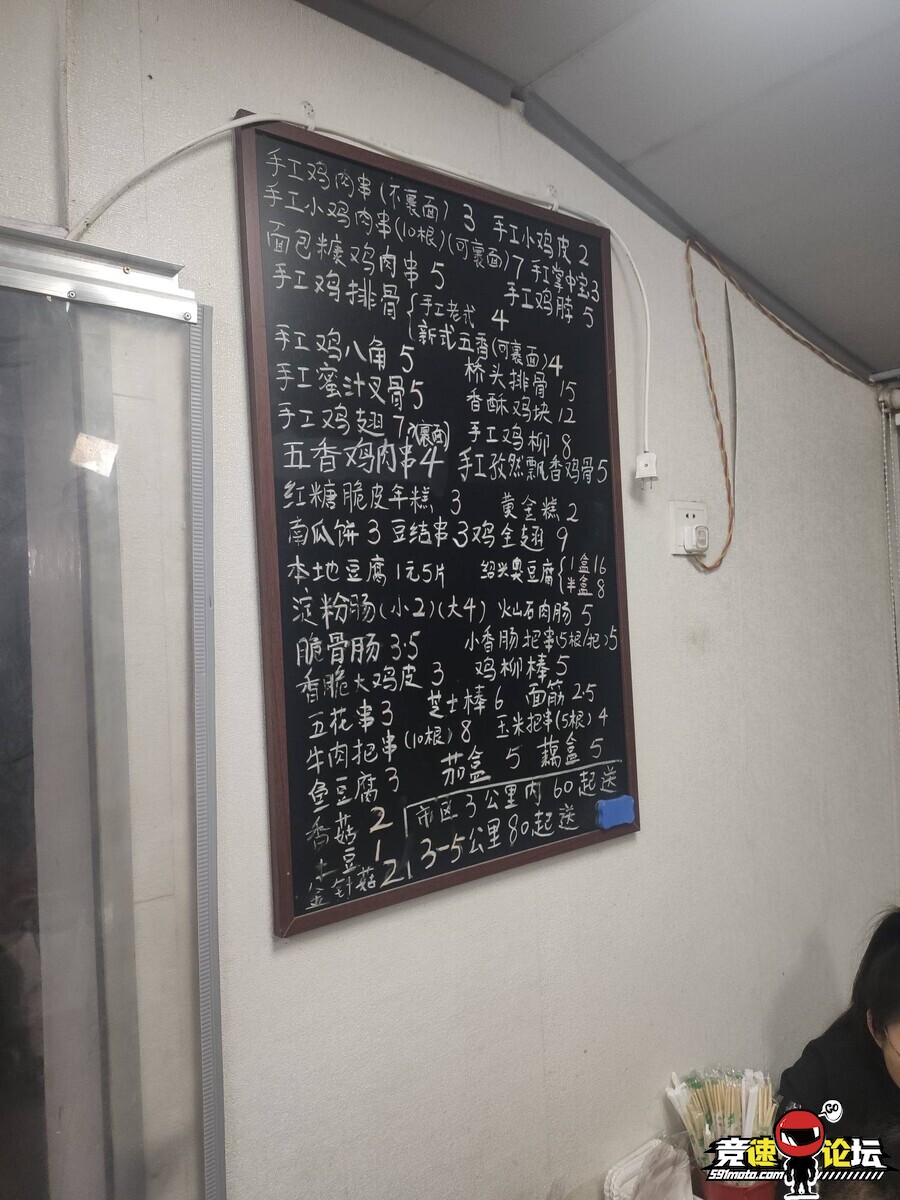 手工鸡肉串(不裹面) 3 手工小鸡皮 2
手工小鸡肉串(10根)(可裹面) 7 手工掌中宝 3
面包糠鸡肉串 5 手工鸡脖 5
手工鸡排骨 手工老式 4
新式五香(可裹面) 4
手工鸡八角 5 桥头排骨 15
手工蜜汁叉骨 5 香酥鸡块 12
手工鸡翅 7 (裹面) 手工鸡柳 8
五香鸡肉串 4 手工孜然飘香鸡骨 5
红糖脆皮年糕 3 黄金糕 2
南瓜饼 3 豆结串 3 鸡全翅 9
本地豆腐 1元5片 绍兴臭豆腐 1盒 16
半盒 8
淀粉肠(小2)(大4) 火山石肉肠 5
脆骨肠 3.5 小香肠把串(5根/把) 5
香脆大鸡皮 3 鸡柳棒 5
五花串 3 芝士棒 6 面筋 2.5
牛肉把串(10根) 8 玉米把串(5根) 4
鱼豆腐 3 茄盒 5 藕盒 5
香菇 2 市区3公里内60起送
土豆 1 3-5公里80起送
金针菇 2
GO
竞速论坛
591moto.com